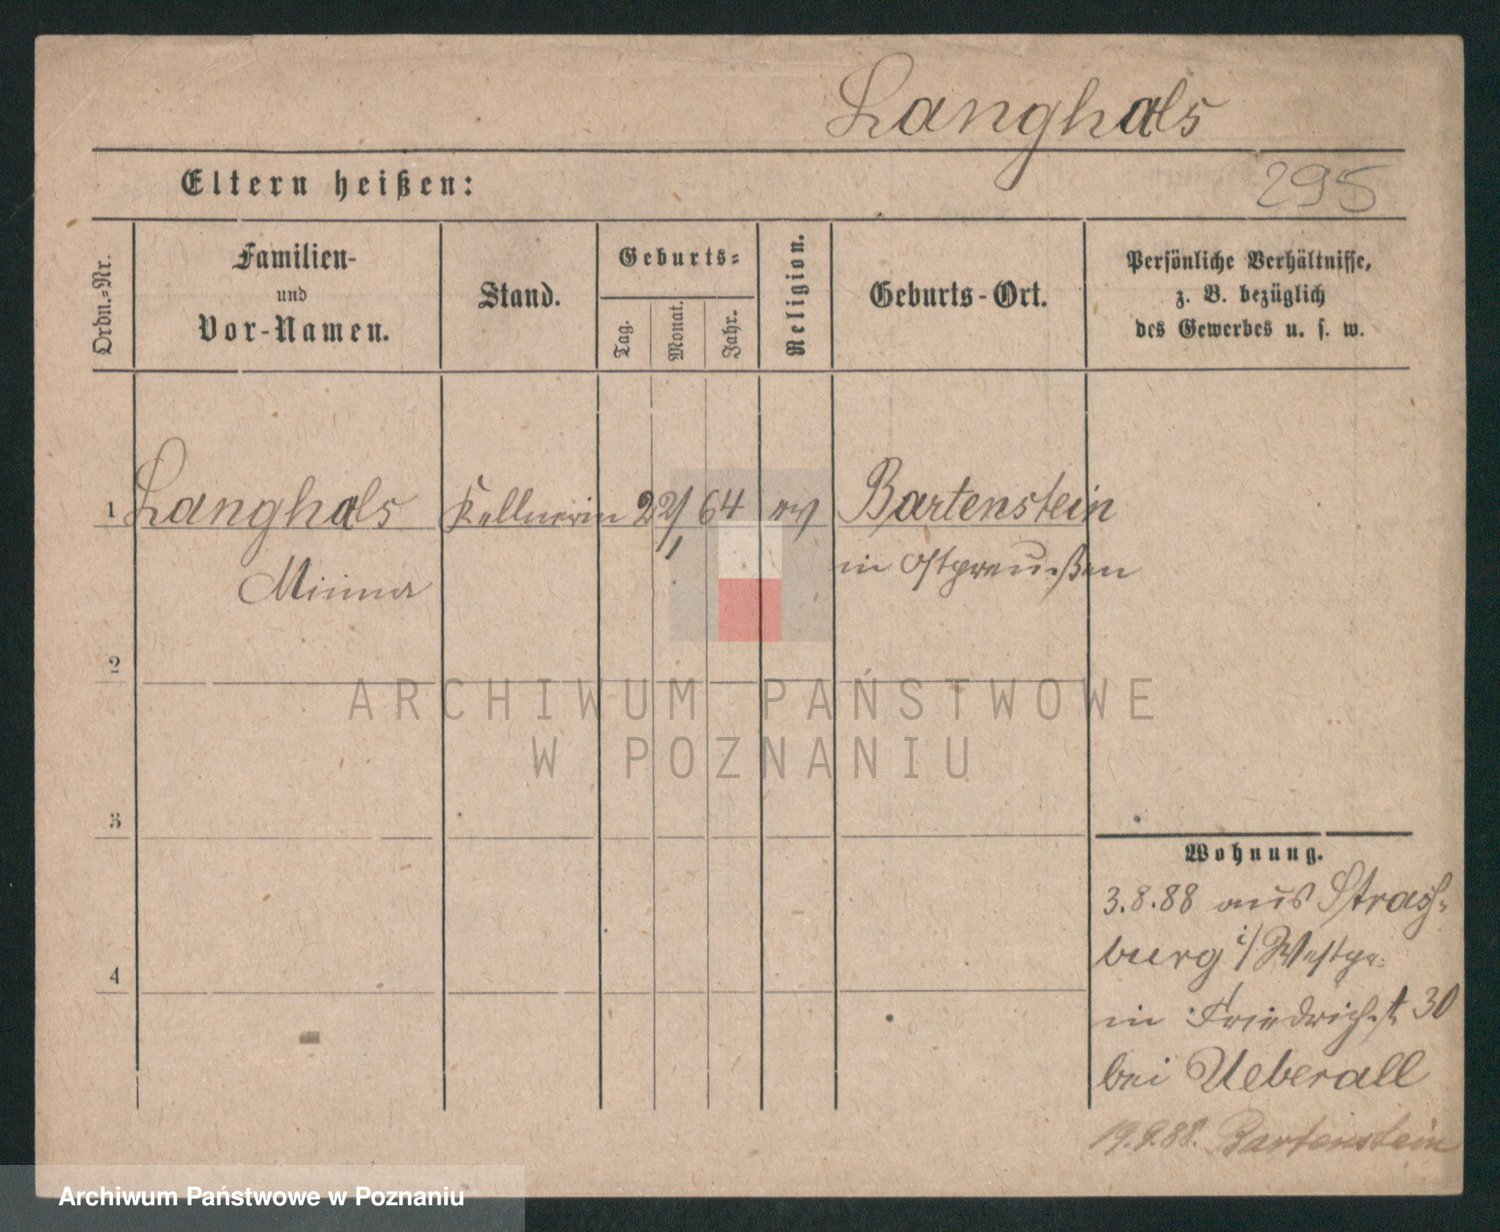 Langhals
295
Eltern heißen:
Ordn.-Nr.
Familien-
und
Vor-Namen.
Stand.
Geburts-
Tag.
Monat.
Jahr.
Religion.
Geburts-Ort.
Persönliche Verhältnisse,
z. B. bezüglich
des Gewerbes u. s. w.
1 Langhals Kellnerin 22/1 64 ev Bartenstein
Minna in Ostpreußen
2
ARCHIWUM PAŃSTWOWE
W POZNANIU
3
Wohnung.
3.8.88 aus Strasz-
burg i/Westpr.
4
in Friedrichst 30
bei Ueberall
19.9.88. Bartenstein
Archiwum Państwowe w Poznaniu